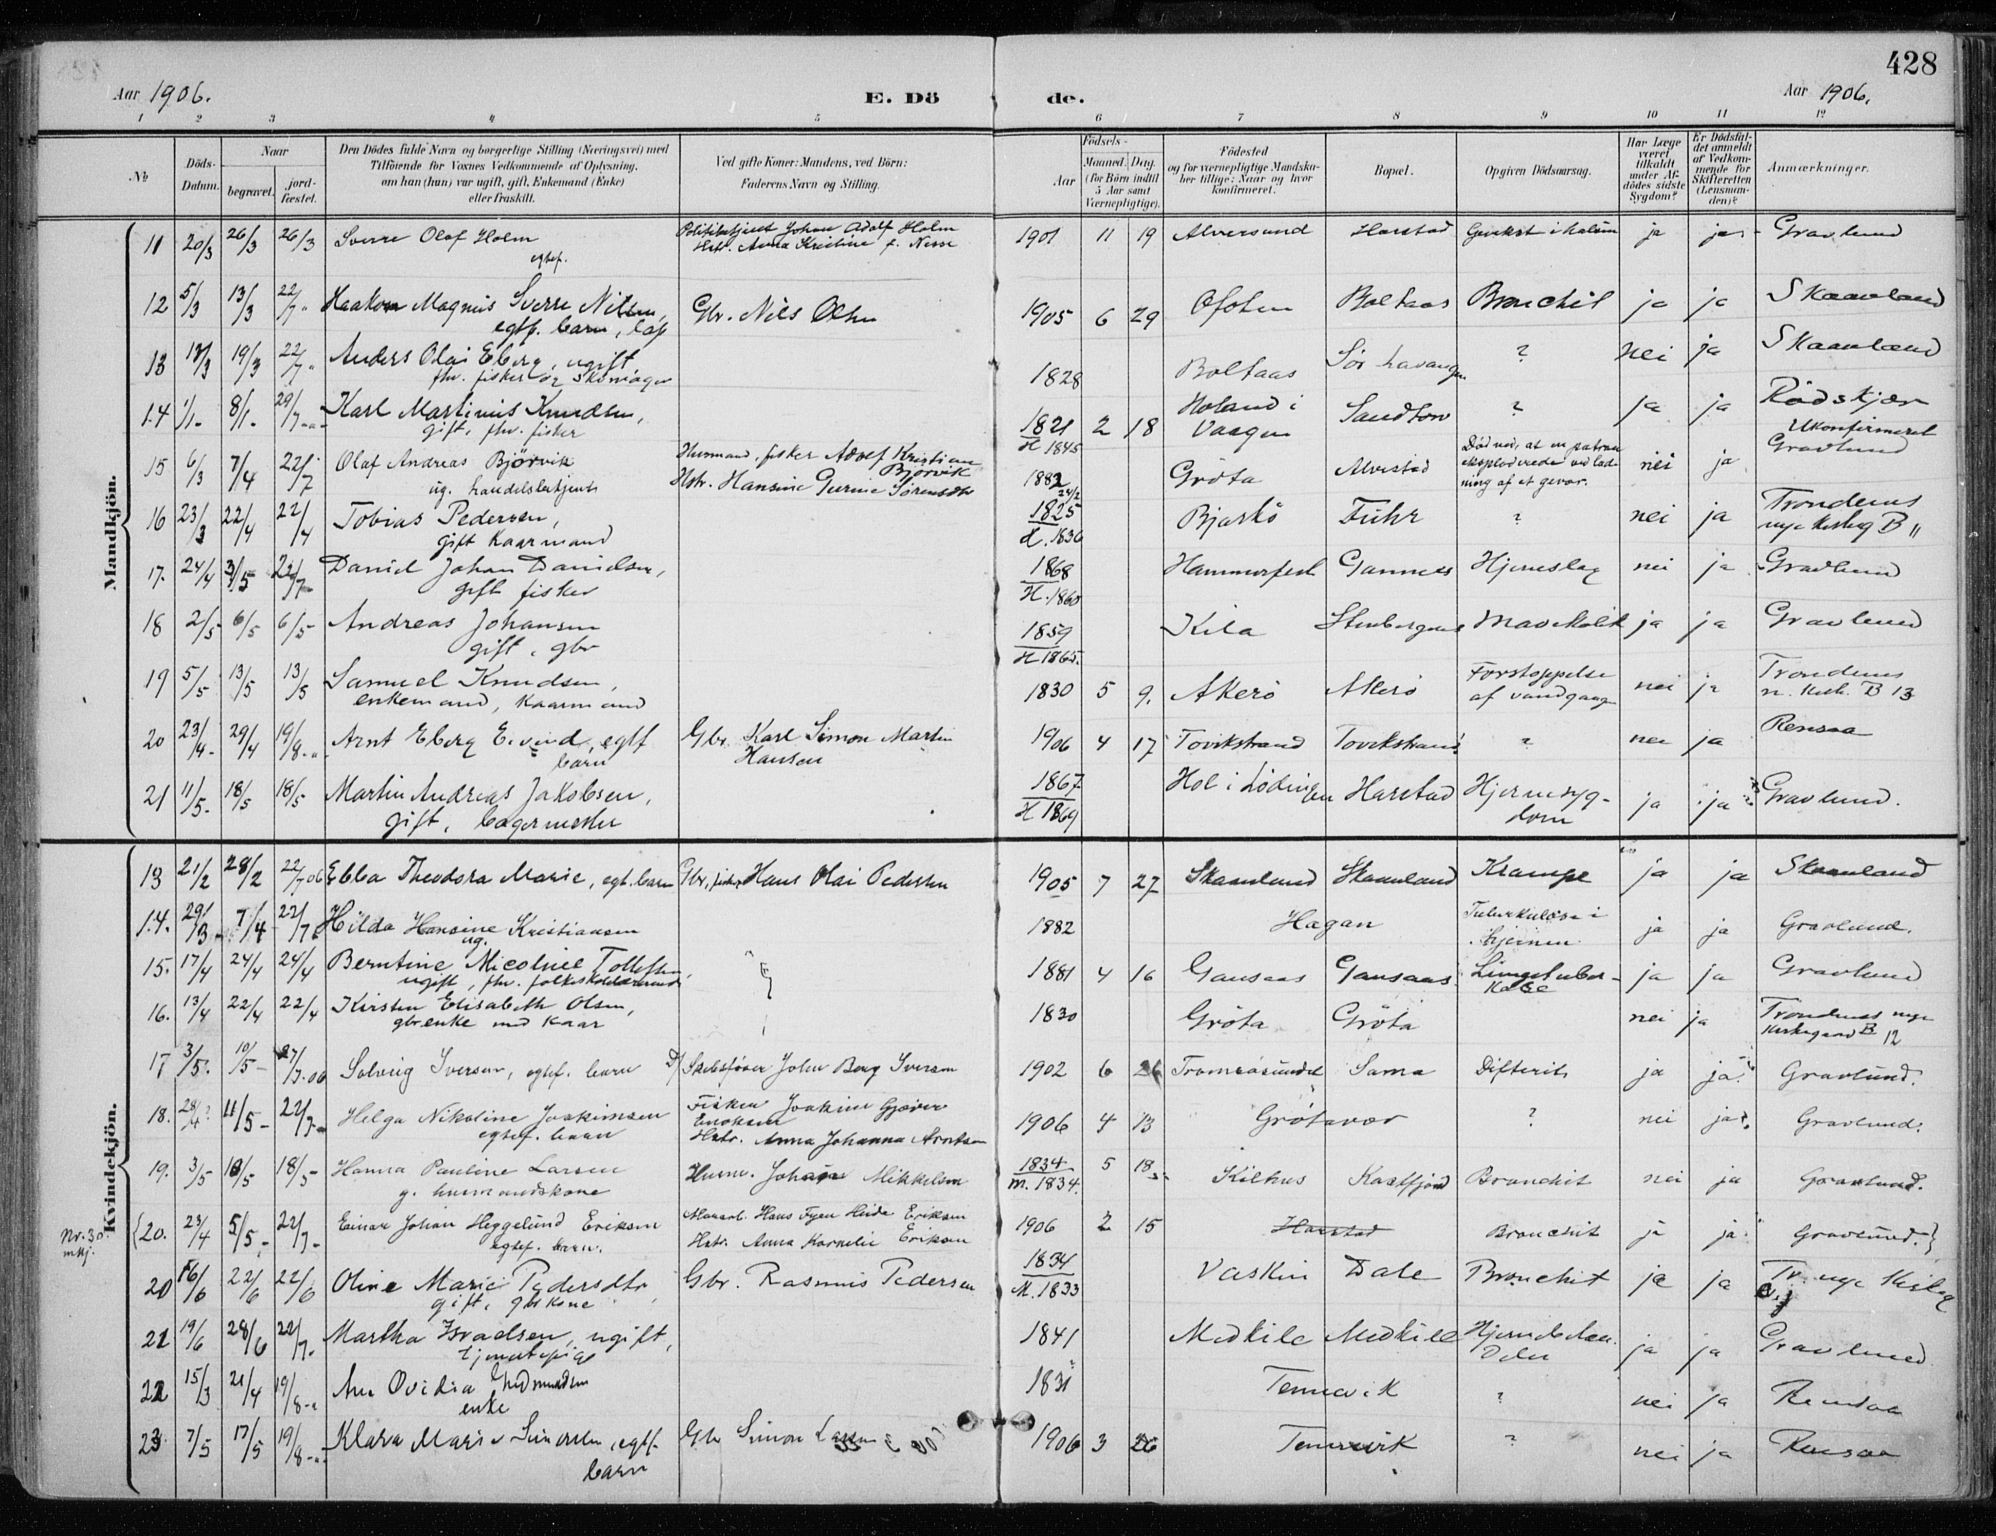 428
Aar 1906.
E. Döde.
Aar 1906.
1 2 3 4 5 6 7 8 9 10 11 12
№
Döds-Datum.
Naar
begravet.
jord-fæstet.
Den Dödes fulde Navn og borgerlige Stilling (Næringsvei) med
Tilföiende for Voxnes Vedkommende af Oplysning,
om han (hun) var ugift, gift, Enkemand (Enke)
eller fraskilt.
Ved gifte Koner: Mandens, ved Börn:
Faderens Navn og Stilling.
Födsels-
Aar
Maaned. Dag.
(for Börn indtil
5 Aar samt
Værnepligtige).
Födested
og for værnepligtige Mandska-
ber tillige: Naar og hvor
konfirmeret.
Bopæl.
Opgiven Dödsaarsag.
Har Læge
været
tilkaldt
under Af-
dödes sidste
Sygdom?
Er Dödsfal-
det anmeldt
af Vedkom-
mende for
Skifteretten
(Lensman-
den)?
Anmærkninger.
Mandkjön.
11 20/3 26/3 26/3 Sverre Olaf Holm egtef. Politibetjent Johan Adolf Holm Hstr. Anna Kristine f. 1901 11 19 Alversund Harstad ja ja Gravlund
12 5/3 13/3 22/7 Haakon Magnus Sverre Nilsen, egtf. barn, lap Gbr. Nils Olsen 1905 6 29 Ofoten Boltaas Bronchit ja ja Skaanland
13 13/3 19/3 22/7 Anders Olai Eberg, ugift fhv. fisker og skomager 1828 Boltaas Sör ? nei ja Skaanland
14 1/1 8/1 29/7 Karl Martinus Knudsen, gift, fhv. fisker 1821 K 1845 2 18 Holand i Vaagen Sandtorv ? ja ja Rödskjær Ukonfirmeret
15 6/3 7/4 22/7 Olaf Andreas Bjørvik ug. handelsbetjent Husmand, fisker Adolf Kristian Bjørvik Hstr. Hansine Gurine Sørensdtr 1882 24/2 Gröta Alvestad Död ved, at en patron eksploderede ved ladning af et gevær. nei ja Gravlund
16 23/3 22/4 22/4 Tobias Pedersen, gift kaarmand 1825 K. 1836 Bjarkö Fuhr ? nei ja Trondenes nye kirkeg B 11
17. 24/4 3/5 22/7 Daniel Johan Danielsen, gift fisker 1868 K. 1860 Hammerfest Gannes Hjerneslag nei ja Gravlund
18 2/5 6/5 6/5 Andreas Johansen gift, gbr 1859 K 1865. Kila Stenbergens Mavekolik ja ja Gravlund
19 5/5 13/5 13/5 Samuel Knudsen, enkemand, kaarmand 1830 5 9. Akerö Akerö Forstoppelse af vandgang nei ja Trondenes n. kirk. B 13
20 23/4 29/4 19/8 Arnt Eberg Eivind, egtf barn Gbr. Karl Simon Martin Hansen 1906 4 17 Tovikstrand Tovikstrand ? nei ja Rensaa
21 11/5 18/5 18/5 Martin Andreas Jakobsen, gift, bagermester 1867 K 1869 Hol i Lödingen Harstad Hjernesygdom ja ja Gravlund.
Kvindekjön.
13 21/2 28/2 22/7 06 Ebba Theodora Marie, egt. barn Gbr, fisker Hans Olai Pedersen 1905 7 27 Skaanland Skaanland Krampe ja ja Skaanland
14. 29/3 7/4 22/7 Hilda Hansine Kristiansen ug. 1882 Hagan Tuberkulose i hjernen ja ja Gravlund.
15. 17/4 24/4 24/4 Berntine Nicoline Tollefsen, ugift, fhv. folkeskolelærerinde 1881 4 16 Gansaas Gansaas Lungetuberkulose ja ja Gravlund
16. 13/4 22/4 22/4 Kirsten Elisabeth Olsen, gbr.enke med kaar 1830 Gröta Gröta nei ja Trondenes nye kirkegaard B 12
17 3/5. 10/5 27/7.06 Solveig Iversen, egtef. barn D/ Skibsfører John Berg Iversen 1902 6 26 Tromsøsundet Sama Difterit ja ja Gravlund.
18. 28/4? 11/5 22/7 Helga Nikoline Joakimsen egtef. barn Fisker Joakim Gjøver Enoksen Hstr. Anna Johanna Arntsen 1906 4 13 Grötavær ? nei ja Gravlund.
19. 3/5 18/5 18/5 Hanna Pauline Larsen g. husmandskone Husm. Johan Mikkelsen 1834 m. 1834. 5 18 Kilhus Kastfjord Bronchit nei ja Gravlund.
Nr. 30. mkj. {20. 23/4 5/5 22/7 Einar Johan Heggelund Eriksen egtef. barn. Hans Fyen Heide Eriksen Hstr. Anna Kornelie Eriksen 1906 2 15 Harstad Bronchit ja ja Gravlund.}
20 16/6 22/6 22/6 Oline Marie Pedersdtr, gift, gbrkone Gbr. Rasmus Pedersen 1834 K. 1833 Vaskin Dale Bronchit ja ja Tr. nye Kirkeg
21 19/6 28/6 22/7. Martha Israelsen, ugift, tjenestepige 1841 Medkile Medkile ja ja Gravlund
22 15/3 21/4 19/8 Ane Ovidia enke 1831 Tennevik ? nei ja Rensaa
23. 7/5 17/5 19/8 Klara Marie Simonsen, egtf. barn Gbr Simon Larsen 1906 3 26 Tennevik ? nei ja Rensaa